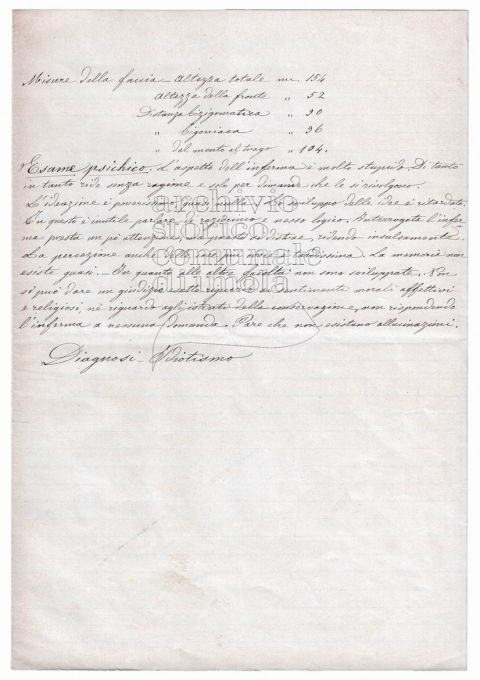 Misure della faccia - Altezza totale mm. 154
Altezza della fronte " 52
Distanza bizigomatica " 90
" bigoniaca " 96
" dal mento al trago " 104.
Esame psichico. L'aspetto dell'inferma è molto stupido. Di tanto
in tanto ride senza ragione e solo per domande che le si rivolgono.
L'ideazione è poverissima sviluppo delle idee è ritardato.
In questo è inutile parlare di raziocinio e nesso logico. Interrogata l'infer-
ma presta un pò attenzione, ma presto si distrae, ridendo insulsamente.
La percezione anche tardissima. La memoria non
esiste quasi. - In quanto alle altre facoltà non sono sviluppate. Non
si può dare un giudizio retto rispetto ai sentimenti morali affettivi
e religiosi, nè riguardo agli istinti della conservazione, non rispondendo
l'inferma a nessuna domanda. Pare che non esistano allucinazioni.
Diagnosi - Idiotismo
archivio
storico
comunale
di imola